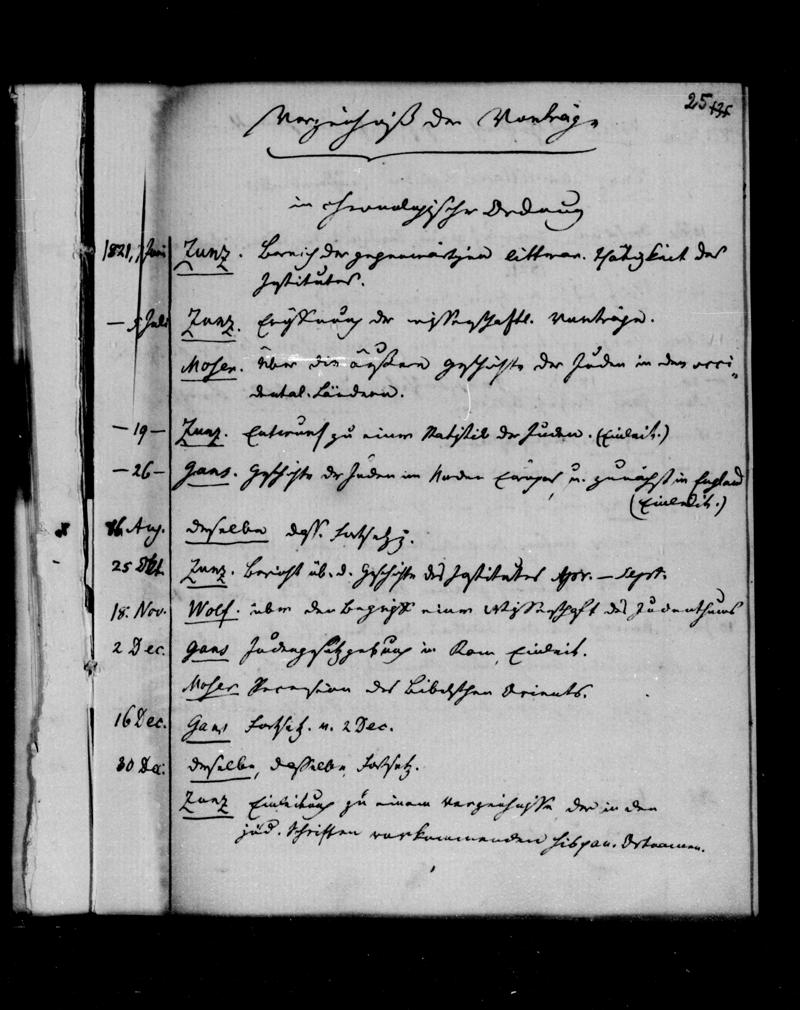 25
Verzeichniß der Vorträge
in chronologischer Ordnung
1821, 7 Juni Zunz. Bereich der gegenwärtigen litterar. Thätigkeit des
Institutes.
— 5 Juli Zunz. Eröffnung der wissenschaftl. Vorträge.
Moser. Über die äußere Geschichte der Juden in den occi
dental. Ländern.
— 19 — Zunz. Entwurf zu einer Statistik der Juden. (Einleit.)
— 26 — Gans. Geschichte der Juden im Norden Europas, u. zunächst in England
(Einleit.)
16 Aug. derselbe dess. Fortsetz.
25 Okt. Zunz. Bericht üb. d. Geschichte des Institutes Apr. — Sept.
18. Nov. Wolf. über den Begriff einer Wissenschaft des Judenthums
2 Dec. Gans Judengesetzgebung in Rom, Einleit.
Moser Recension des Biblischen Orients.
16 Dec. Gans Fortsetz. v. 2 Dec.
30 Dec. derselbe, desselben Fortsetz.
Zunz Einleitung zu einem Verzeichnisse der in den
jüd. Schriften vorkommenden hispan. Ortnamen.